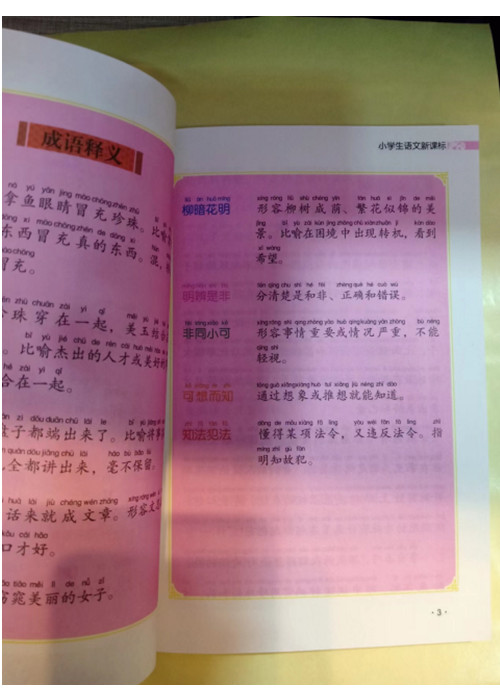 成语释义
ná yú yǎn jīng mào chōng zhēn zhū
拿鱼眼睛冒充珍珠。比喻
东西冒充真的东西。混，
冒充。
珍珠穿在一起，美玉结合
。比喻杰出的人才或美好
合在一起。
子都端出来了。比喻将事
全都讲出来，毫不保留。
话来就成文章。形容文
口才好。
窈窕美丽的女子。
小学生语文新课标
liǔ àn huā míng
柳暗花明
xíng róng liǔ shù chéng yīn fán huā sì jǐn de měi
形容柳树成荫、繁花似锦的美
jǐng bǐ yù zài kùn jìng zhōng chū xiàn zhuǎn jī kàn dào
景。比喻在困境中出现转机，看到
xī wàng
希望。
明辨是非
fēn qīng chu shì hé fēi zhèng què hé cuò wù
分清楚是和非、正确和错误。
fēi tóng xiǎo kě
非同小可
xíng róng shì qing zhòng yào huò qíng kuàng yán zhòng bù néng
形容事情重要或情况严重，不能
qīng shì
轻视。
可想而知
tōng guò xiǎng xiàng huò tuī xiǎng jiù néng zhī dào
通过想象或推想就能知道。
知法犯法
dǒng de mǒu xiàng fǎ lìng yòu wéi fǎn fǎ lìng zhǐ
懂得某项法令，又违反法令。指
míng zhī gù fàn
明知故犯。
·3·